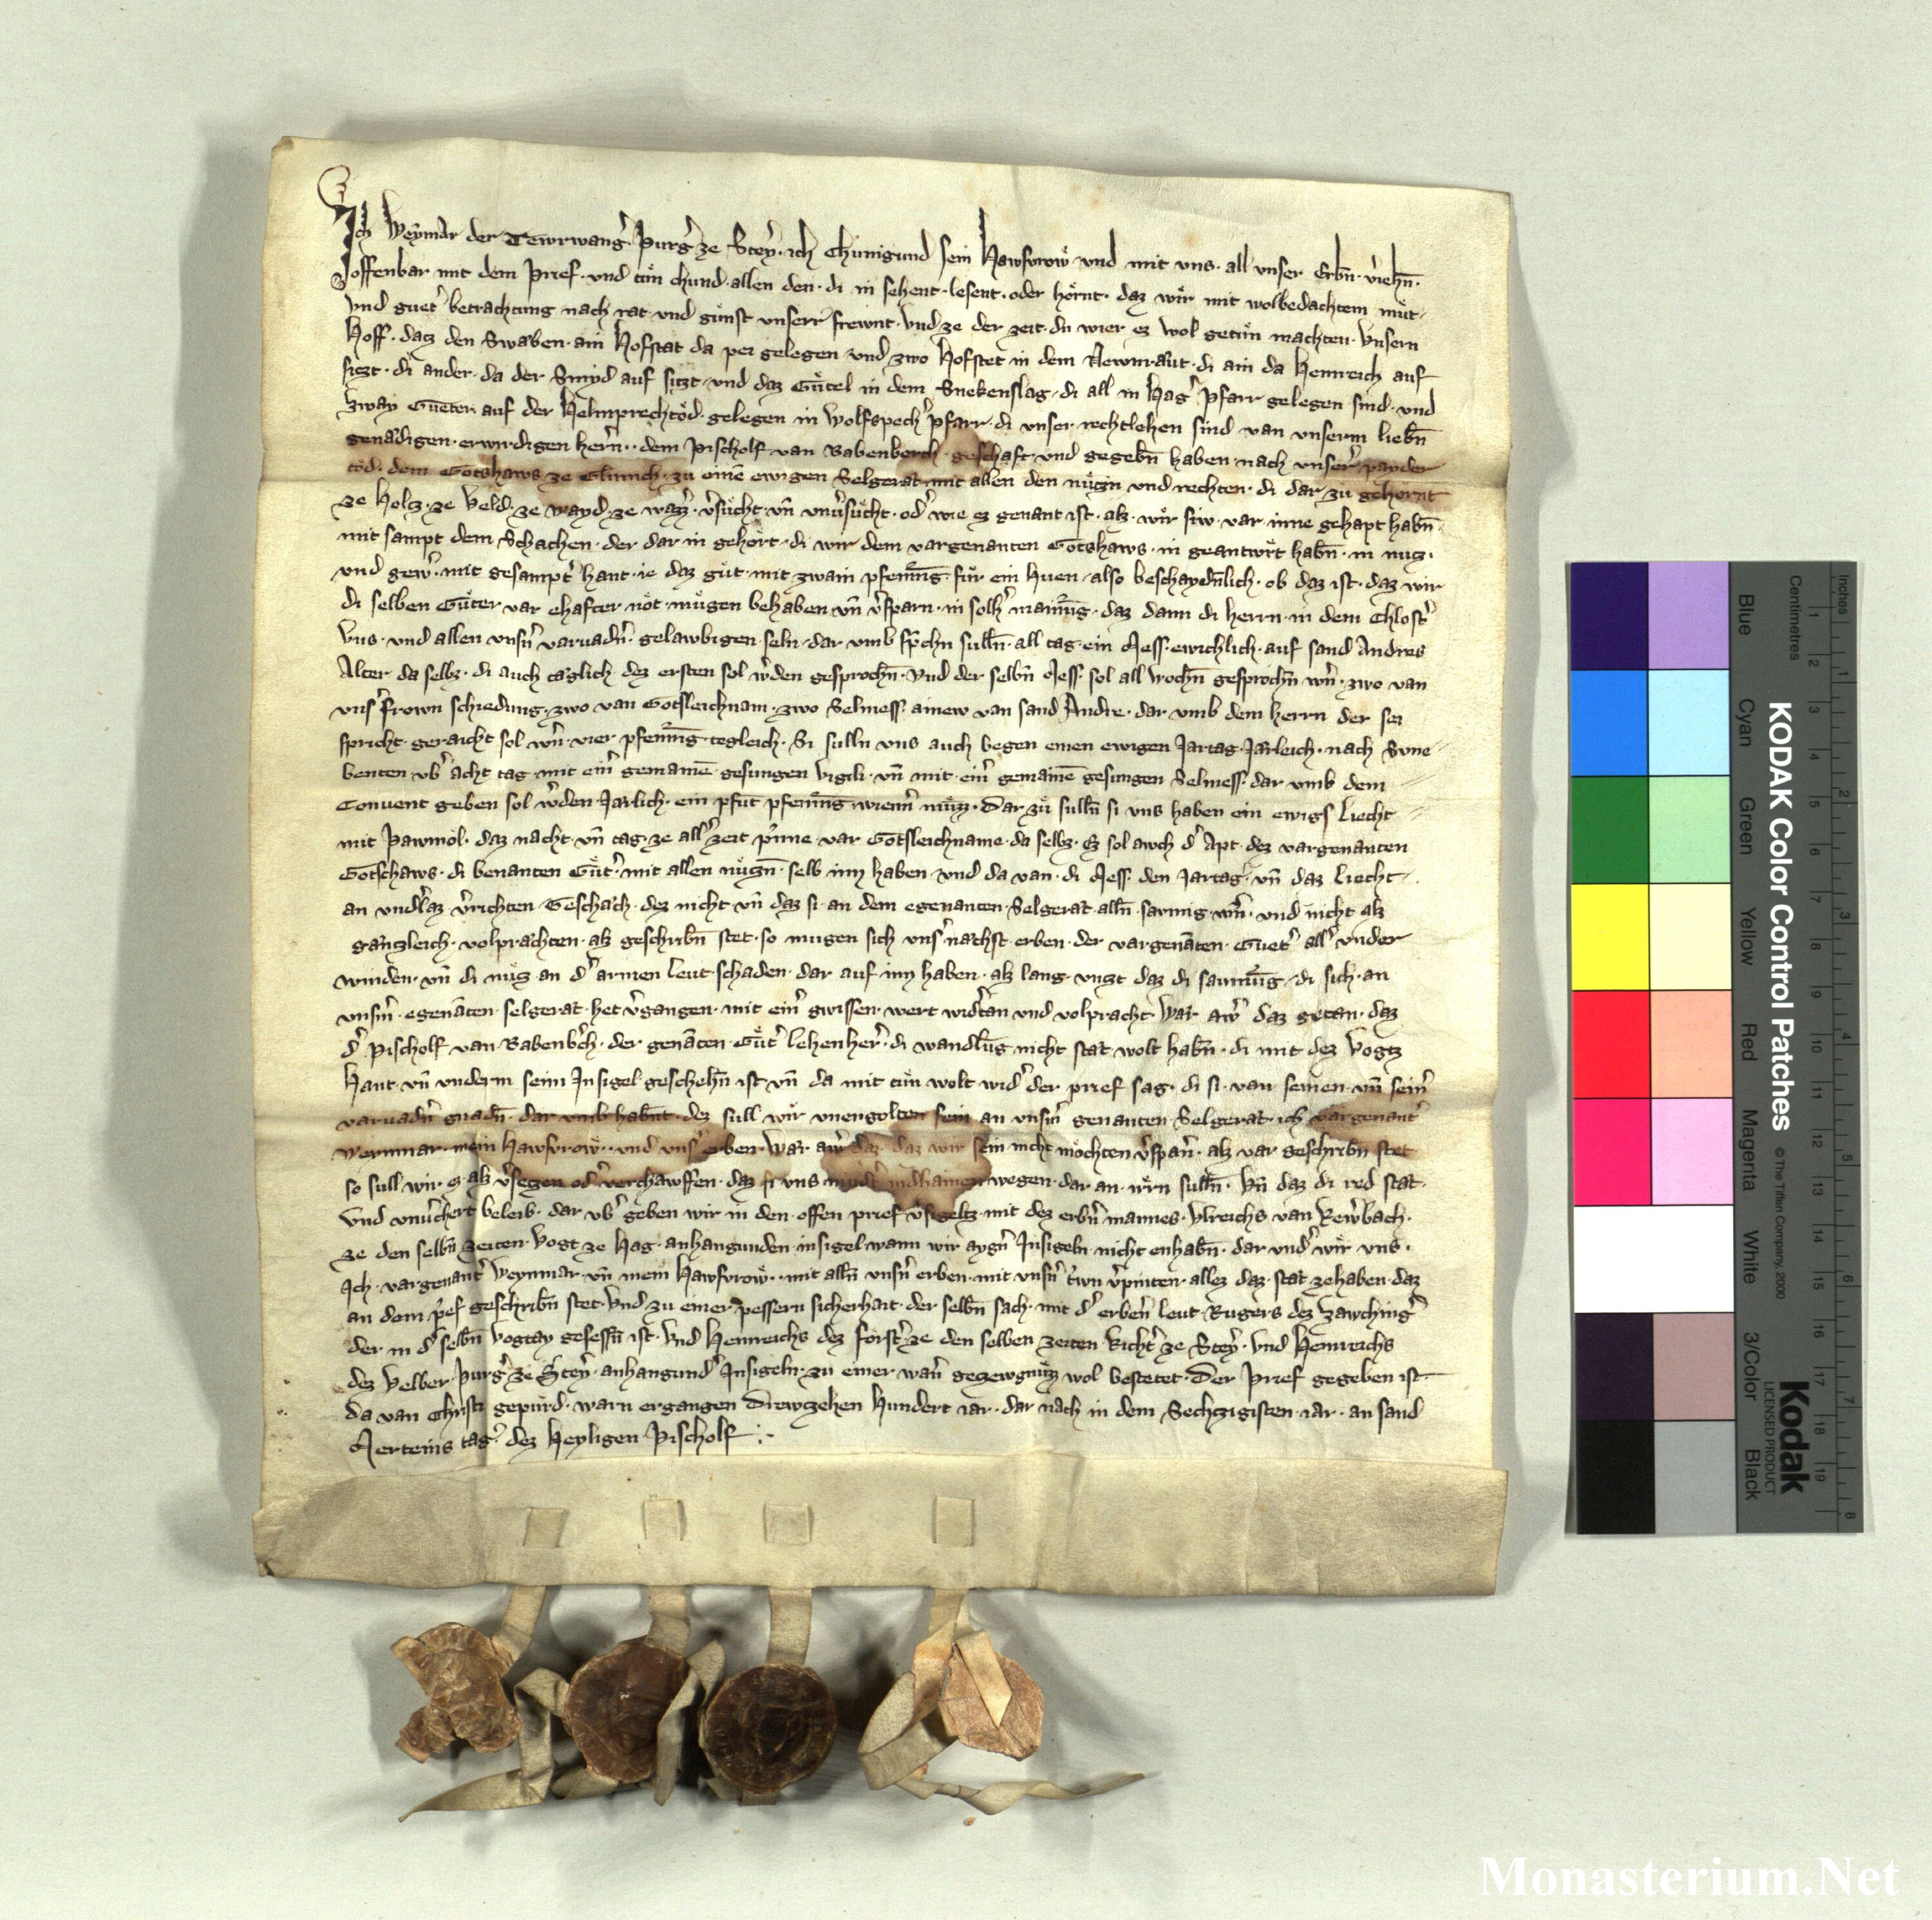 Ich Weymar der Tewrwang̉ Purg̉ ze Steỷr · ich Chunigund sein Hawsvrow̉ und mit uns · all unser Erbn̄ · v̉iehn̄ ·
offenbar mit dem Prief · und tůn chund · allen den · di in sehent · lesent · oder hörnt · daz wir mit wolbedachtem můt ·
und guet̉ betrachtung nach rat und gůnst unserr frewnt · Und ze der zeit · du wier ez wol getůn machten · Unsern
Hoff · datz den Swaben · ain Hofstat da pei gelegen und zwo Hofstet in dem Newnraut · di ain da Hennreich auf
sitzt · di ander · da der Smyd auf sitzt · und daz Gůtel in dem Snekenslag · di all in Hag̉ Pfarr gelegen sind · und
zway Gueter · auf der Helmprechtöd · gelegen in Wolfspech̉ pfarr · di unser rechtlehen sind van unserm liebn̄
genädigen · erwirdigen hern̉ · dem Pischolf van Babenberch geschaft · und gegebn̄ haben · nach unser̉ payder
töd · dem Gotshaws ze Glunich · zu einē ewigen Selgerät mit allen den nůtzn und rechten · di dar zů gehörnt
ze Holtz · ze Veld · ze wayd · ze wazz̉ · v̉sůcht · un̄ unv̉sůcht · od̉ wie ez genant ist · alz · wir siw · var · inne gehapt habn̄ ·
mit sampt dem Schachen · der dar in gehört · di wir dem vargenanten Gotshaws · in geantwr̉t habn̄ · in nutz ·
und gew̉ · mit gesampt̉ hant · ie daz gůt · mit zwain pfenn̄īg · für ein Huen · also beschaydn̄lich · ob daz ist · daz wir
di selben Gůter var ehafter nöt · mügen behaben un̄ v̉sparn · in solh̉ mainūg · daz dann di herrn · in dem Chlost̉
uns · und allen unsn̉ varvadn̉ · gelawbigen seln · dar umb sp̄chn sulln̄ · all tag · ein Mess · ewichlich · auf sand Andres
Alter da selbz · di auch täglich dez ersten sol w̉den gesprochn̄ · Und der selbn̄ Mess · sol all wochn̄ gesprochn̄ wn̉ · zwo van
uns̉ frown schiedung · zwo van Gotsleichnam · zwo Selmess · ainew van sand Andre · dar umb dem herrn der sei
spricht · geraicht sol wn̉ · vier pfenn̄īg · tegleich · Si sulln uns auch begen einen ewigen Jartag · Järleich · nach Sune
benten ub̉ acht tag · mit ein̉ gemainē gesungen Vigili · un̄ mit · ein̉ gemainē gesungen Selmess · dar umb dem
Convent geben sol w̉den Järlich · ein pfut pfenn̄īg wienn̉ můzz · Dar zů sulln̄ si uns haben ein ewigs Liecht
mit Pawmöl · daz nacht · un̄ tag · ze all̉ zeit p̉inne · var Gotsleichname · da selbz · Ez sol awch d̉ Apt · dez vargenanten
Gotschaws · di benanten Gůt̉ · mit allen nůtzn̄ · selb inn haben · und da van · di Mess · den Jartag · un̄ daz Liecht ·
an undlaz v̉richten · Geschäch · dez nicht un̄ daz si · an dem egenanten · Selgerät · alln̄ · sawmig wn̉ · und nicht alz
gäntzleich · volprächten · alz geschribn̄ stet · so mugen sich uns̉ nächst erben · der vargenāten · Guet̉ all̉ under
winden · un̄ di nutz an d̉ armen leut · schaden · dar auf inn haben · alz lang · untzt daz di saumūg · di sich · an
unsn̉ · egenāten · selgerät · het v̉gangen · mit ein̉ gwissen · wert wid̉tan und volpracht · War aw̉ daz getan · daz
d̉ Pischolf van Babenb̉ch · der genāten · Gůt̉ lehenher̉ · di wandlūg nicht stät wolt habn̄ · di mit dez Vogtz
Hant · un̄ underm seim Insigel geschehn̄ ist un̄ da mit tůn wolt wid̉ der prief sag · di si · van seinen · un̄ sein̉
varvadn̉ gnadn̄ · dar umb habnt · dez sull wir unengolten sein an unsm̉ genanten Selgerät · ich vargenant̉
Weynmar · mein Hawsvrow̉ · und uns̉ erben · War · aw̉ daz · daz wir sein nicht möchten v̉sparn̉ · alz var geschribn̄ stet
so sull wir · ez · alz v̉setzen od̉ verchawffen · daz si uns nind̉t indhainen wegen · dar an · irrn sulln̄ · Un̄ daz di red stät ·
und unv̉chert beleib · dar ub̉ geben wir in den · offen prief v̉sigeltz · mit dez erbn̉ mannes · Ulreichs van Rewbach ·
ze den selbn̄ zeiten · Vogt ze Hag · anhangunden insigel · wann wir aygn̉ Insigeln nicht enhabn̄ · dar und̉ wir uns ·
Ich · vargenant̉ Weynmar · un̄ mein Hawsvrow̉ · mit alln̄ unsn̉ erben · mit unsn̉ triwn v̉pinten · allez daz · stät zehaben · daz
an dem p̉ief geschribn̄ stet · Und zu einer pessern sicherhait · der selbn̄ sach · mit d̉ erben̄ leut · Rugers dez Hawching̉
der in d̉ selbn̄ Vogtay gesessn̄ ist · Und Hennreichs dez Forst̉ ze den selben zeiten · Richt̉ ze Steỷr · und Hennreichs
dez Velber · Purg̉ ze Steỷr · anhangund̉ Insigeln · zu einer warn̉ gezewgnůzz wol bestetet · Der Prief gegeben ist
da van Christi gepůrd · warn ergangen Drewzehen Hundert iar · dar nach in dem Sechzigisten · iar · an sand
Merteins tag · dez Heyligen Pischolf
KODAK Color Control Patches
© The Tiffen Company, 2000
Kodak
LICENSED PRODUCT
Inches
Centimetres
Blue Cyan Green Yellow Red Magenta White 3/Color Black
1 2 3 4 5 6 7 8 9 10 11 12 13 14 15 16 17 18 19
1 2 3 4 5 6 7 8
Monasterium.Net